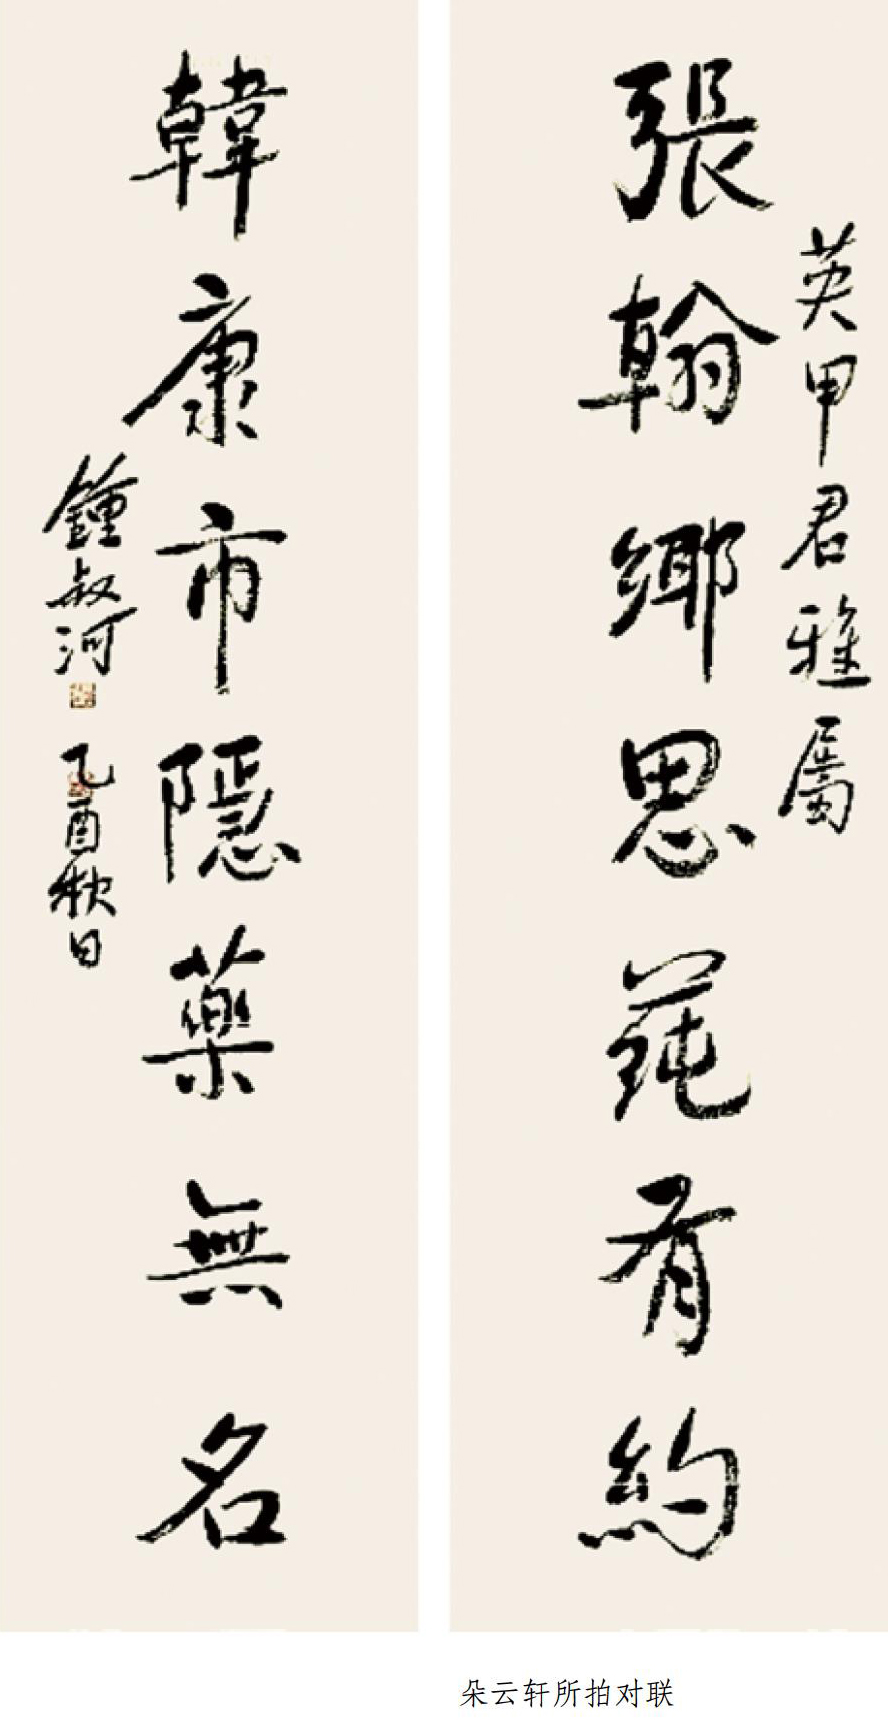 英甲君雅屬
張翰鄉思蒓有約
韓康市隱藥無名
鍾叔河
乙酉秋日
朵云轩所拍对联